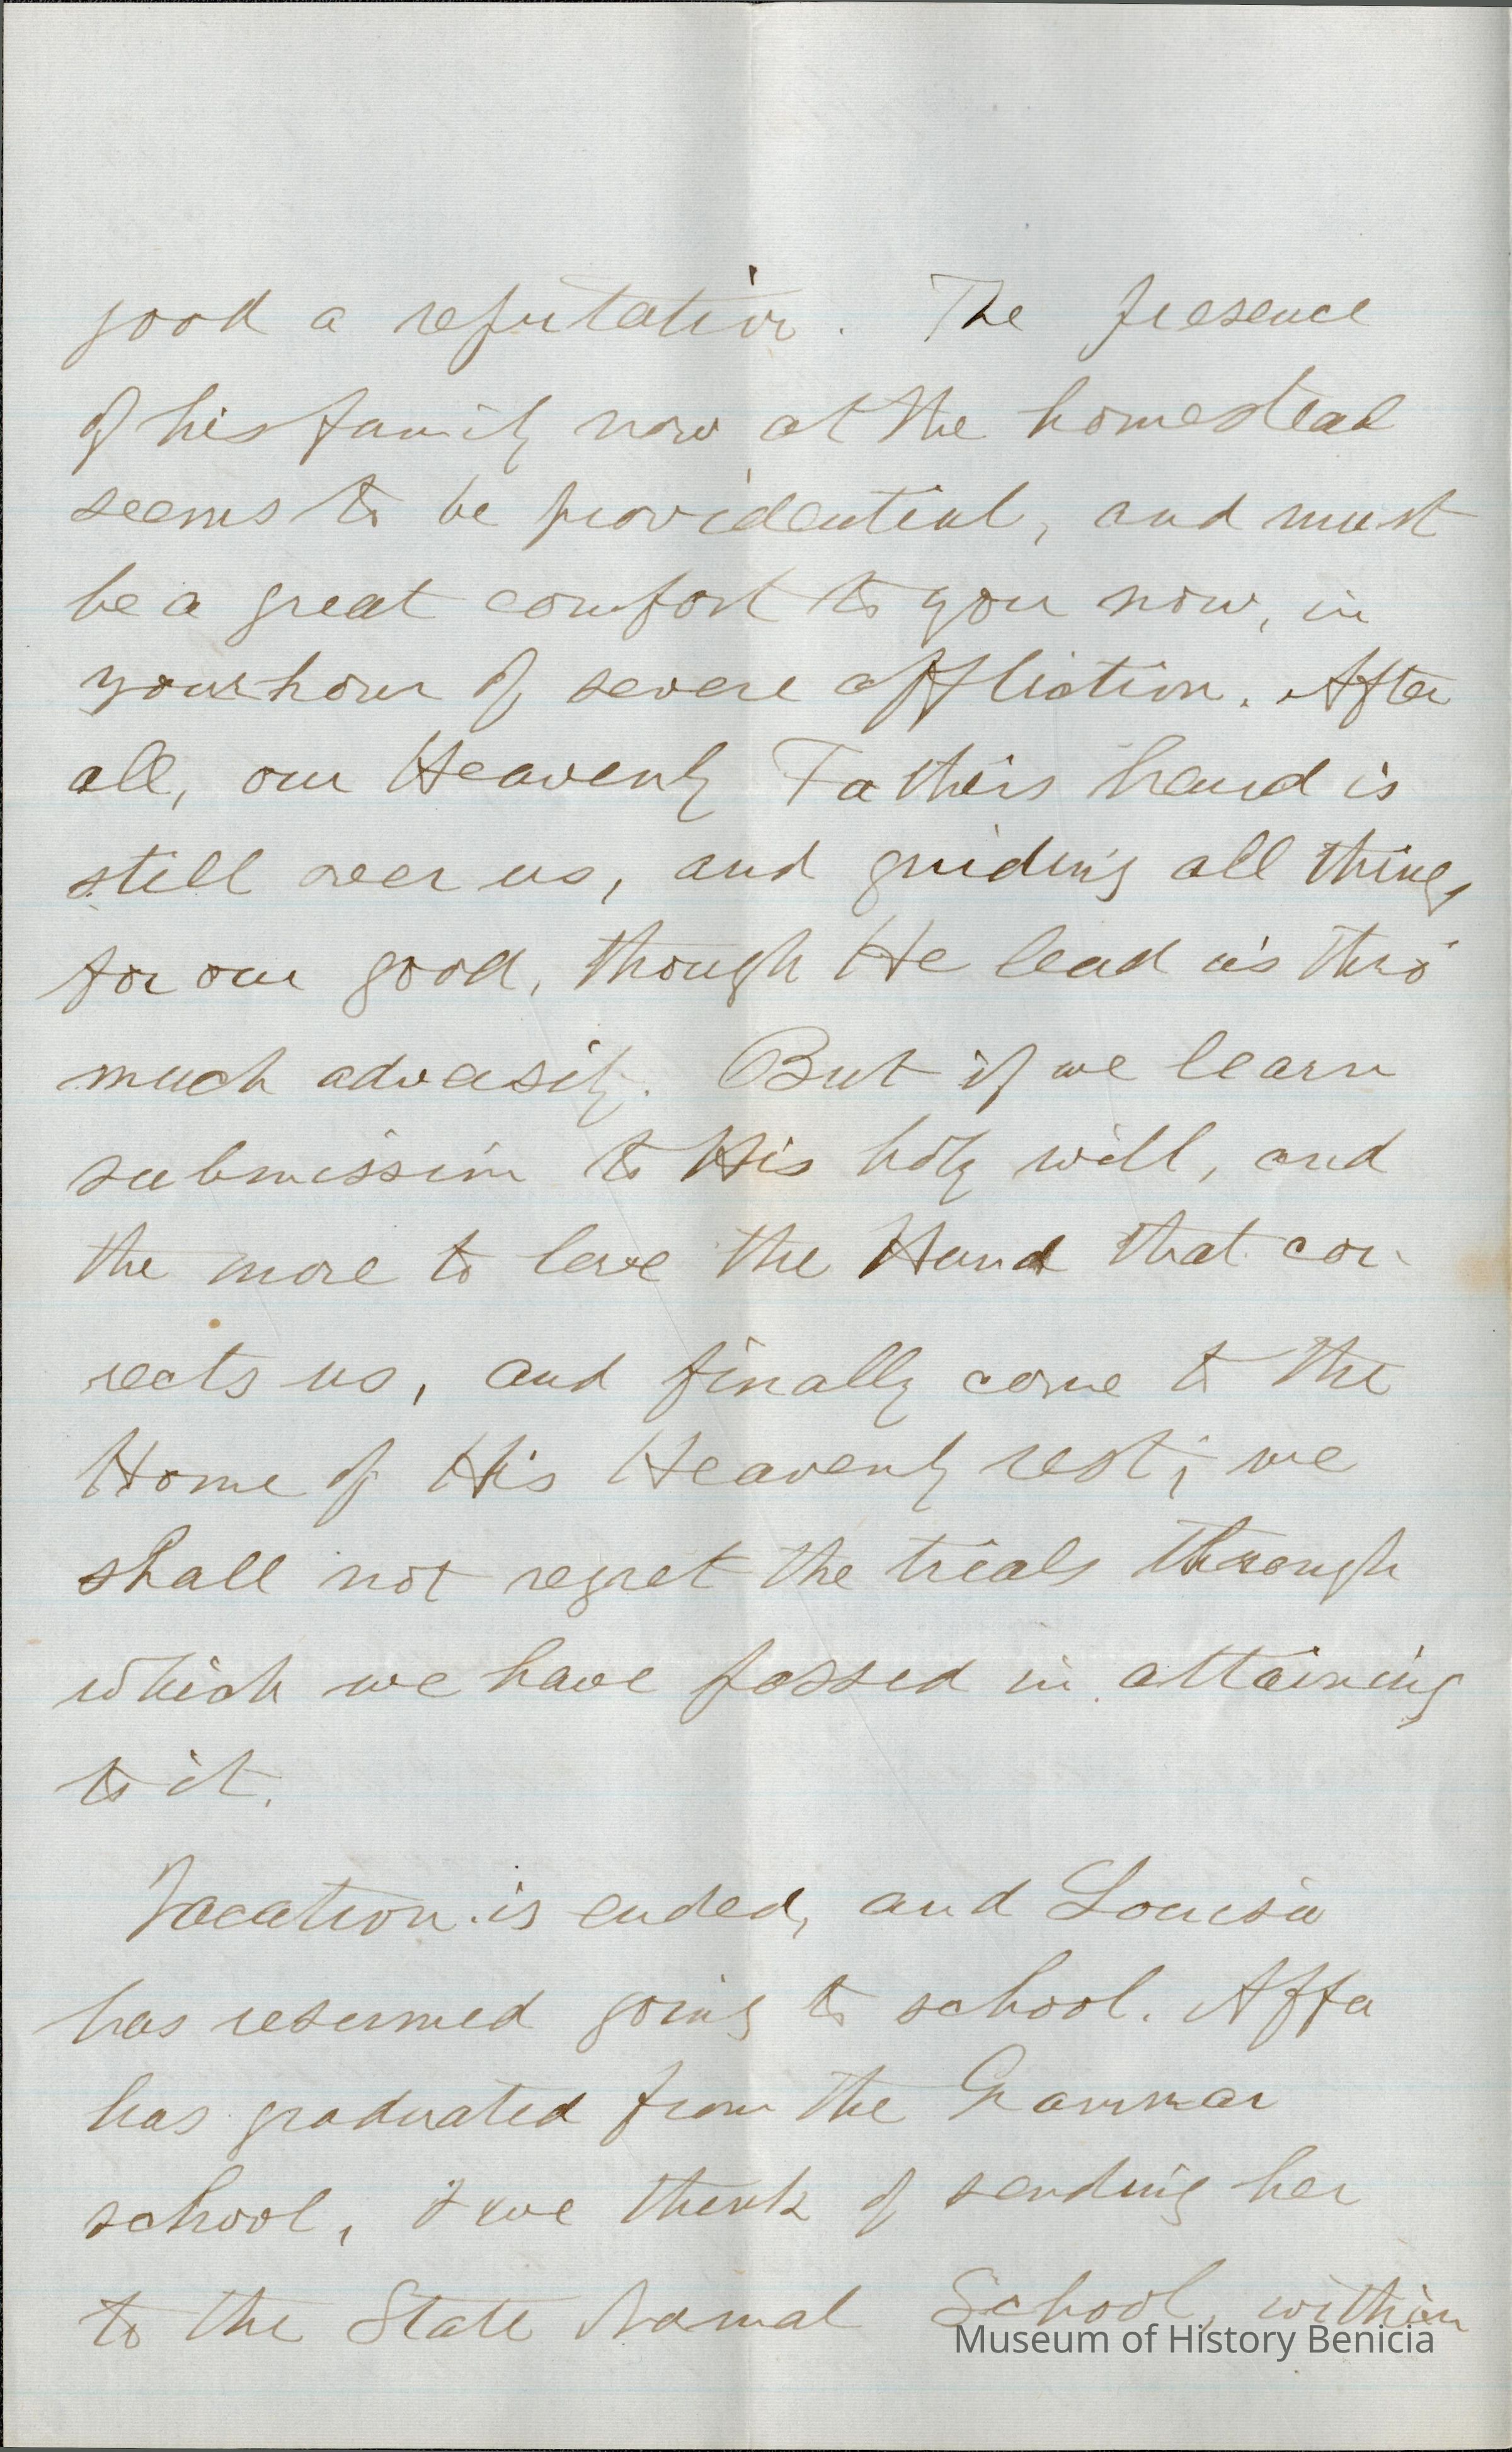 good a reputation. The presence
of his family now at the homestead
seems to be providential, and must
be a great comfort to you now, in
your hour of severe affliction. After
all, our Heavenly Father's hand is
still over us, and guiding all things
for our good, though He lead us thro'
much adversity. But if we learn
submission to His holy will, and
the more to love the Hand that cor-
rects us, and finally come to the
Home of His Heavenly rest; we
shall not regret the trials through
which we have passed in attaining
to it.
Vacation is ended, and Louisa
has resumed going to school. Affa
has graduated from the Grammar
school, & we think of sending her
to the State Normal School, within
Museum of History Benicia